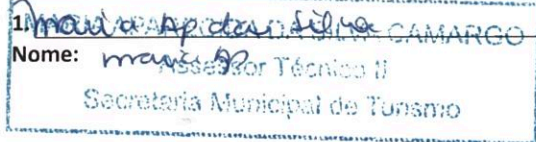 1. Maria Ap da Silva CAMARGO
Nome: maria Ap
Assessor Técnico II
Secretaria Municipal de Turismo